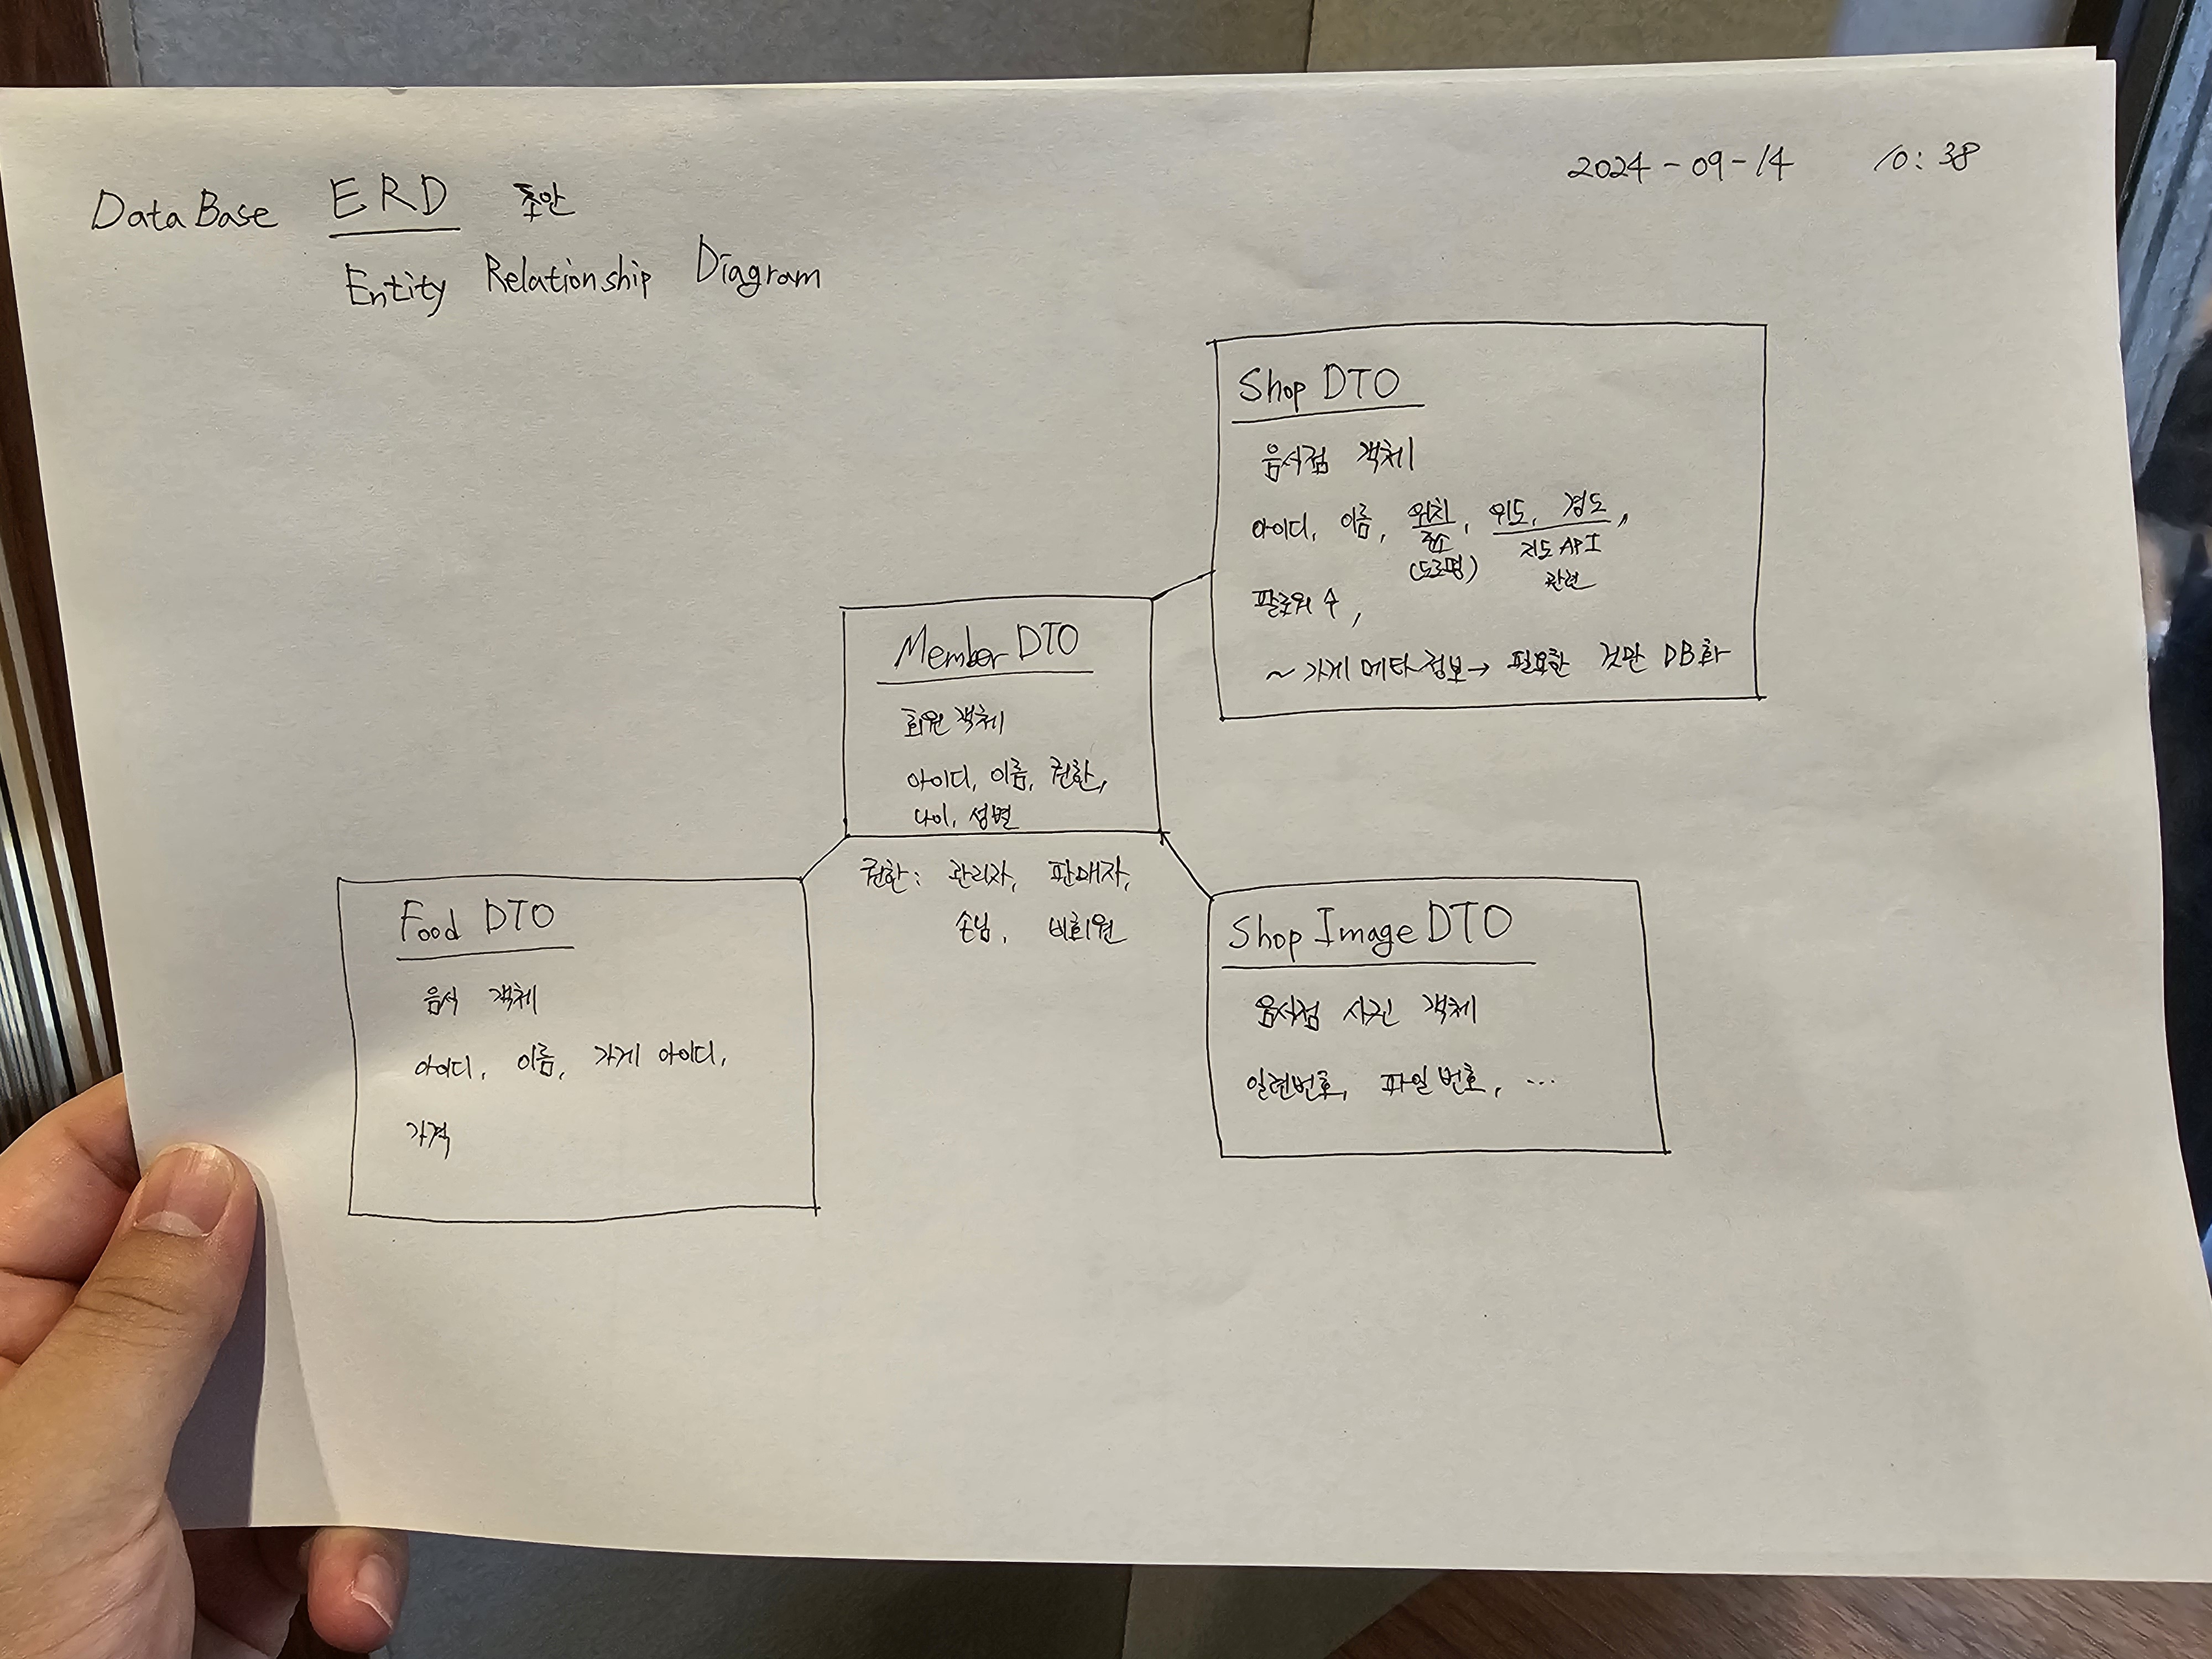 DataBase ERD 초안
Entity Relationship Diagram
2024-09-14 10:38
Shop DTO
음식점 객체
아이디, 이름, 위치, 위도, 경도,
주소 지도 API
(도로명) 관련
팔로워 수,
~ 가게 메타 정보 → 필요한 것만 DB화
Member DTO
회원 객체
아이디, 이름, 권한,
나이, 성별
권한: 관리자, 판매자,
손님, 비회원
Food DTO
음식 객체
아이디, 이름, 가게 아이디,
가격
Shop Image DTO
음식점 사진 객체
일련번호, 파일 번호, ...